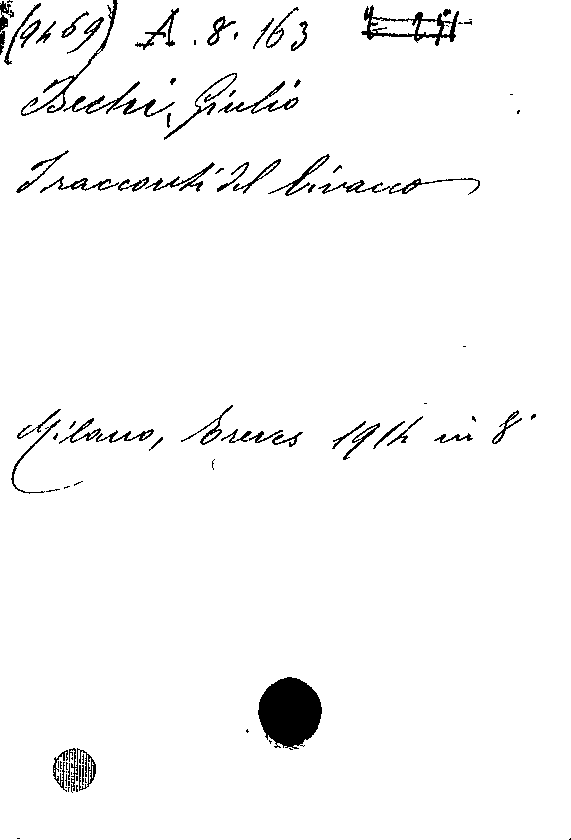 (9469) A. 8. 163
Bechi, Giulio
I racconti del bivacco
Milano, Treves 1914 in 8°